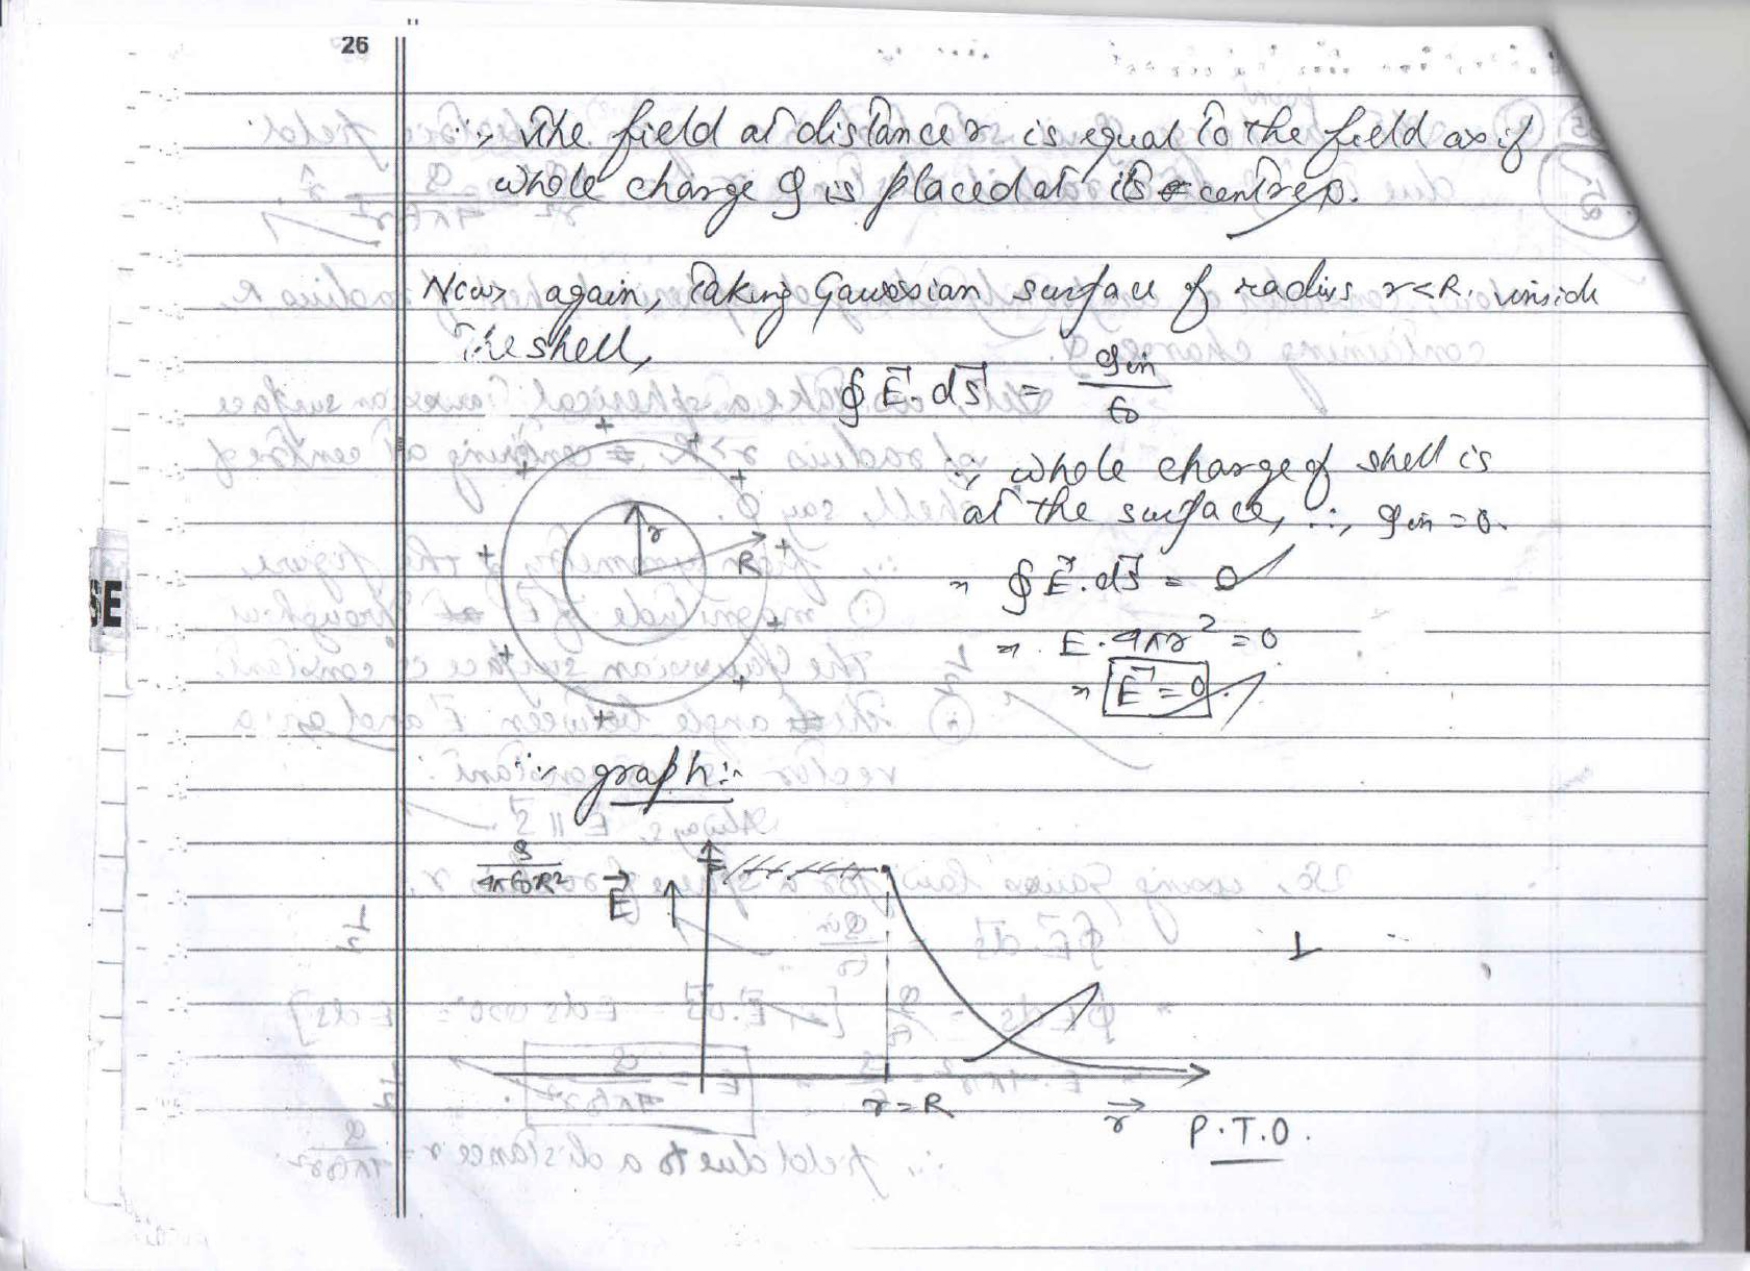 26
∴, The field at distance r is equal to the field as if
whole charge Q is placed at its centre.
Now again, Taking Gaussian surface of radius r<R. inside
the shell,
∮ E⃗. ds⃗ = qin/ε0
∵, whole charge of shell is
at the surface, ∴, qin = 0.
r
R
SE
⇒ ∮ E⃗.ds⃗ = 0
⇒ E. 4πr² = 0
⇒ E⃗ = 0.
∴ graph:-
Q/4πε0R²
E⃗
1
r=R
r⃗
P.T.O.